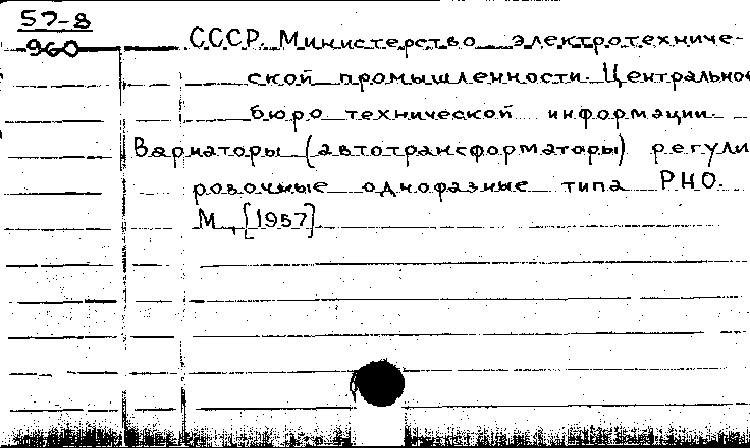 57-8
960
СССР. Министерство электротехниче-
ской промышленности. Центральное
бюро технической информации.
Вариаторы (автотрансформаторы) регули
ровочные однофазные типа РНО.
М., [1957]